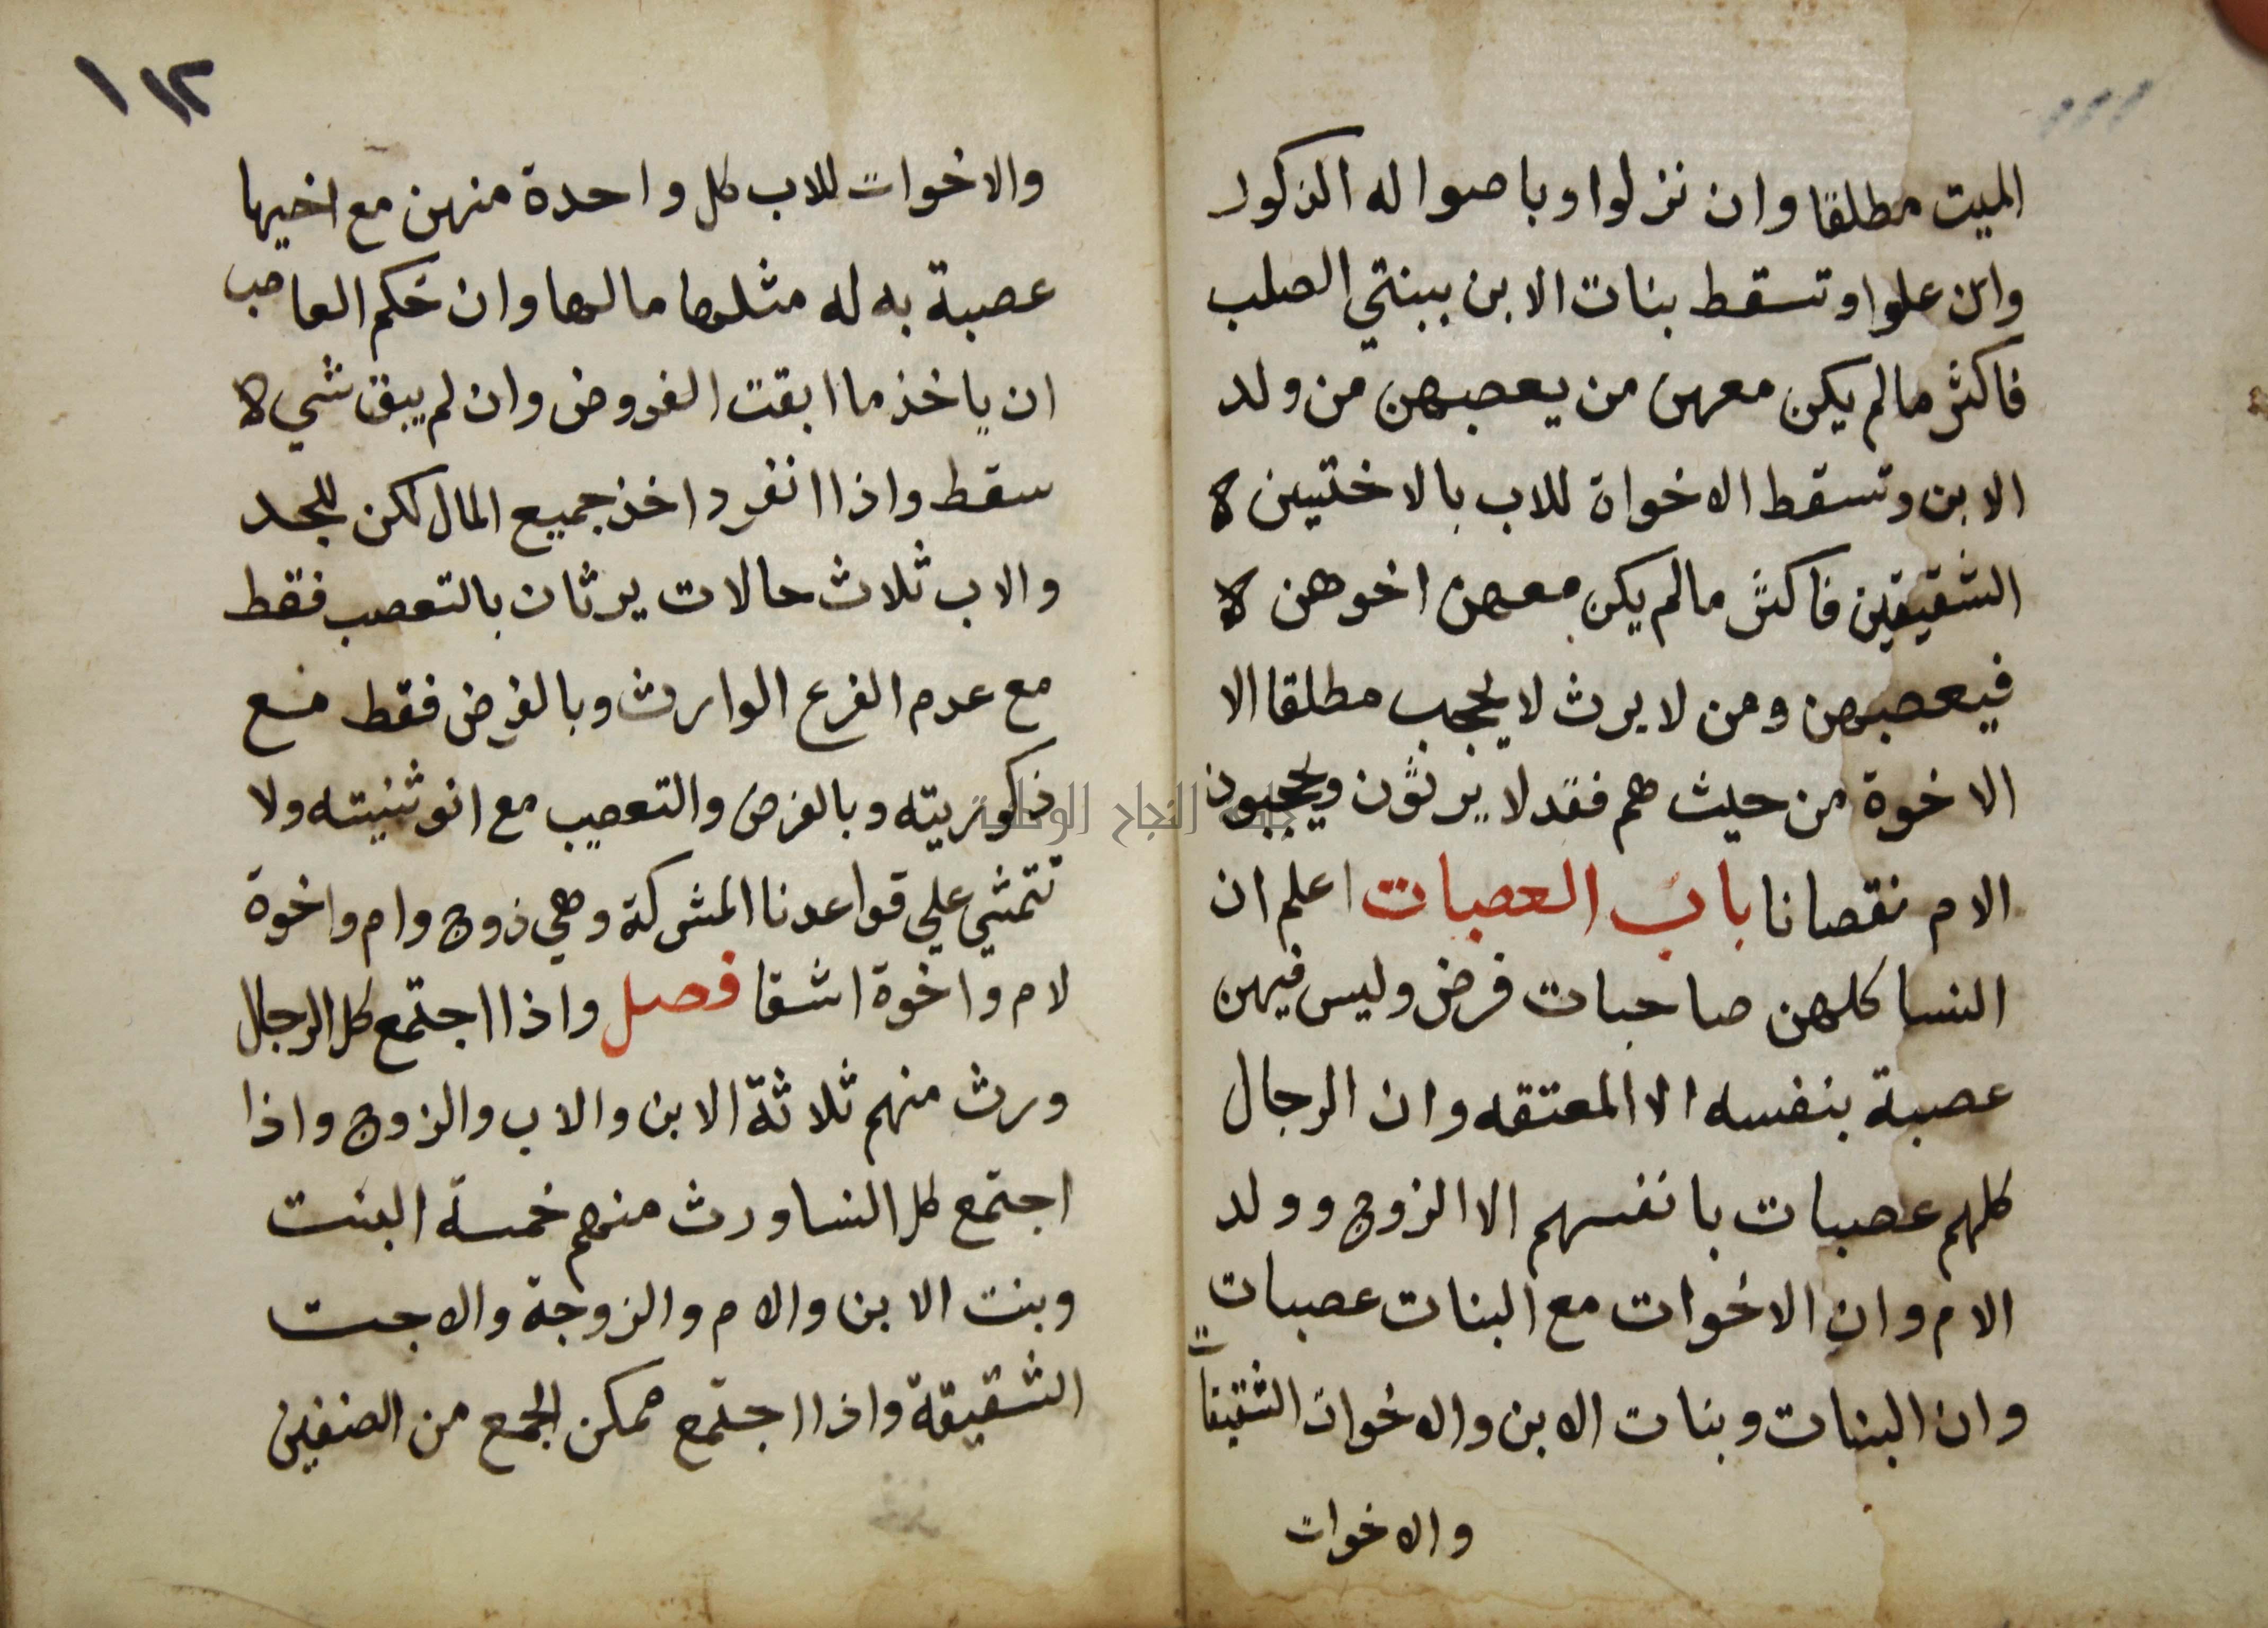 ١١١
الميت مطلقا وان نزلوا وباصوله الذكور
وان علوا وتسقط بنات الابن ببنتي الصلب
فاكثر مالم يكن معهن من يعصبهن من ولد
الابن وتسقط الاخواة للاب بالاختين
الشقيقين فاكثر مالم يكن معهن اخوهن
فيعصبهن ومن لا يرث لا يحجب مطلقا الا
الاخوة من حيث هم فقد لا يرثون ويحجبون
الام نقصانا باب العصبات اعلم ان
النسا كلهن صاحبات فرض وليس فيهن
عصبة بنفسه الا المعتقه وان الرجال
كلهم عصبات بانفسهم الا الزوج وولد
الام وان الاخوات مع البنات عصبات
وان البنات وبنات الابن والاخوات الشقيقات
والاخوات
١١٢
والاخوات للاب كل واحدة منهن مع اخيها
عصبة به له مثلها مالها وان حكم العاصب
ان ياخذ ما ابقت الفروض وان لم يبق شي
سقط واذا انفرد اخذ جميع المال لكن للجد
والاب ثلاث حالات يرثان بالتعصب فقط
مع عدم الفرع الوارث وبالفرض فقط مع
ذكوريته وبالفرض والتعصيب مع انوثنيته ولا
تتمشي علي قواعدنا المشركة وهي زوج وام واخوة
لام واخوة اشقا فصل واذا اجتمع كل الرجال
ورث منهم ثلاثة الابن والاب والزوج واذا
اجتمع كل النسا ورث منهم خمسة البنت
وبنت الابن والام والزوجة والاجت
الشقيقة واذا اجتمع ممكن الجمع من الصنفين
جامعة النجاح الوطنية